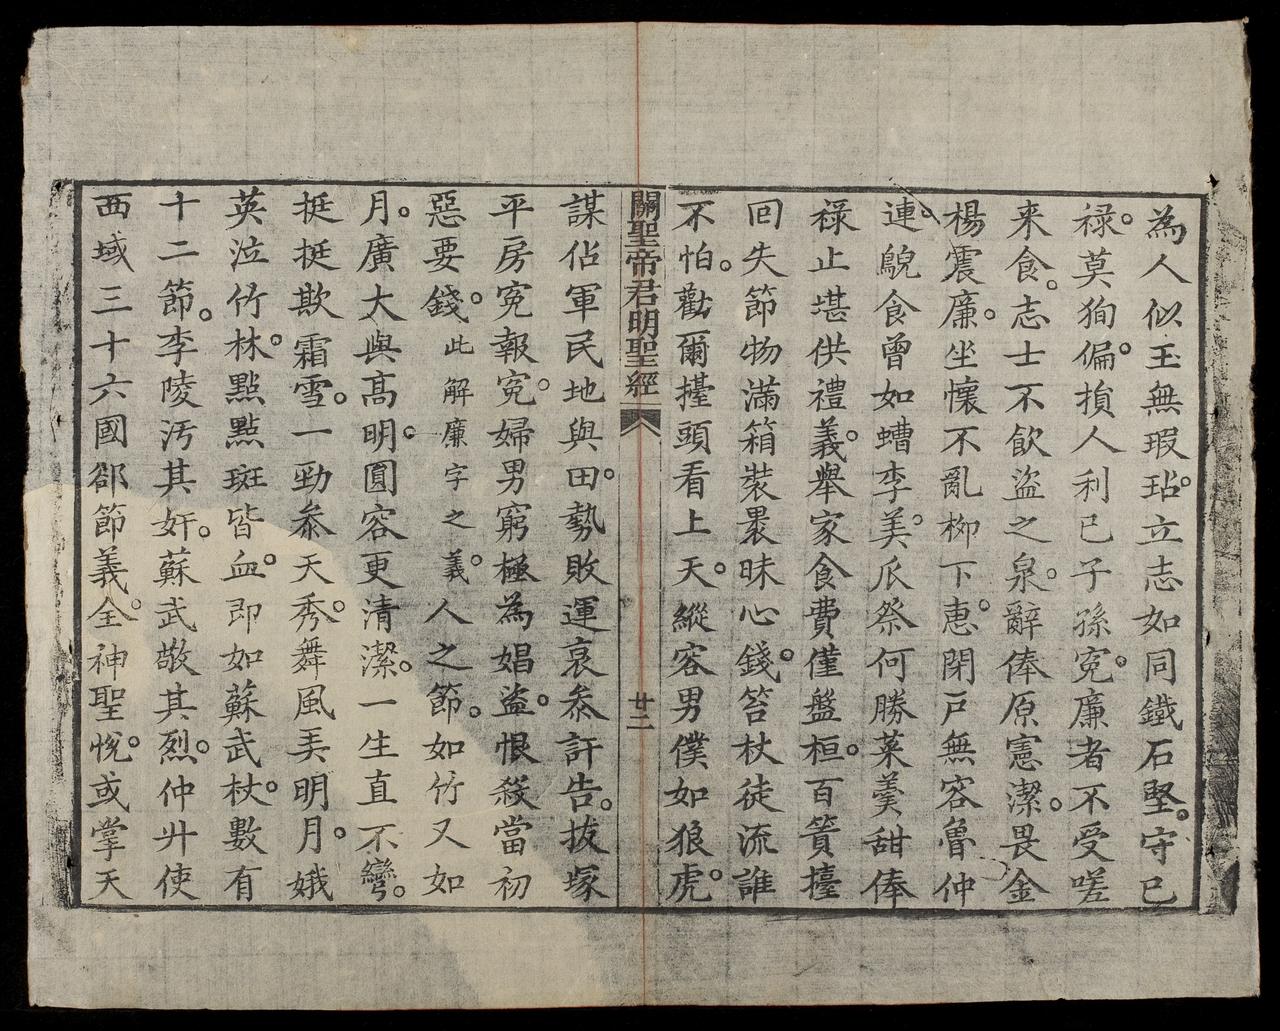 為人似玉無瑕玷。立志如同鐵石堅。守已
禄。莫狥偏。損人利已子孫寃。廉者不受嗟
来食。志士不飲盜之泉。辭俸原憲潔。畏金
楊震廉。坐懷不亂柳下惠。閉戸無容魯仲
連。鵝食曾如螬李美。瓜祭何勝菜羹甜俸
禄止堪供禮義。舉家食費僅盤桓。百簣擡
回失節物滿箱裝裹昧心錢。笞杖徒流誰
不怕。勸爾擡頭看上天。縱容男僕如狼虎。
關聖帝君明聖經
廿二
謀佔軍民地與田。勢敗運衰叅訐告。拔塚
平房寃報寃。婦男窮極為娼盜。恨殺當初
惡要錢。此解廉字之義。人之節。如竹又如
月。廣大與高明。圓容更清潔。一生直不彎。
挺挺欺霜雪。一勁叅天秀。舞風弄明月。娥
英泣竹林。點點斑皆血。即如蘇武杖。數有
十二節。李陵汚其奸。蘇武敬其烈。仲升使
西域三十六國郤節義全。神聖悅。或掌天